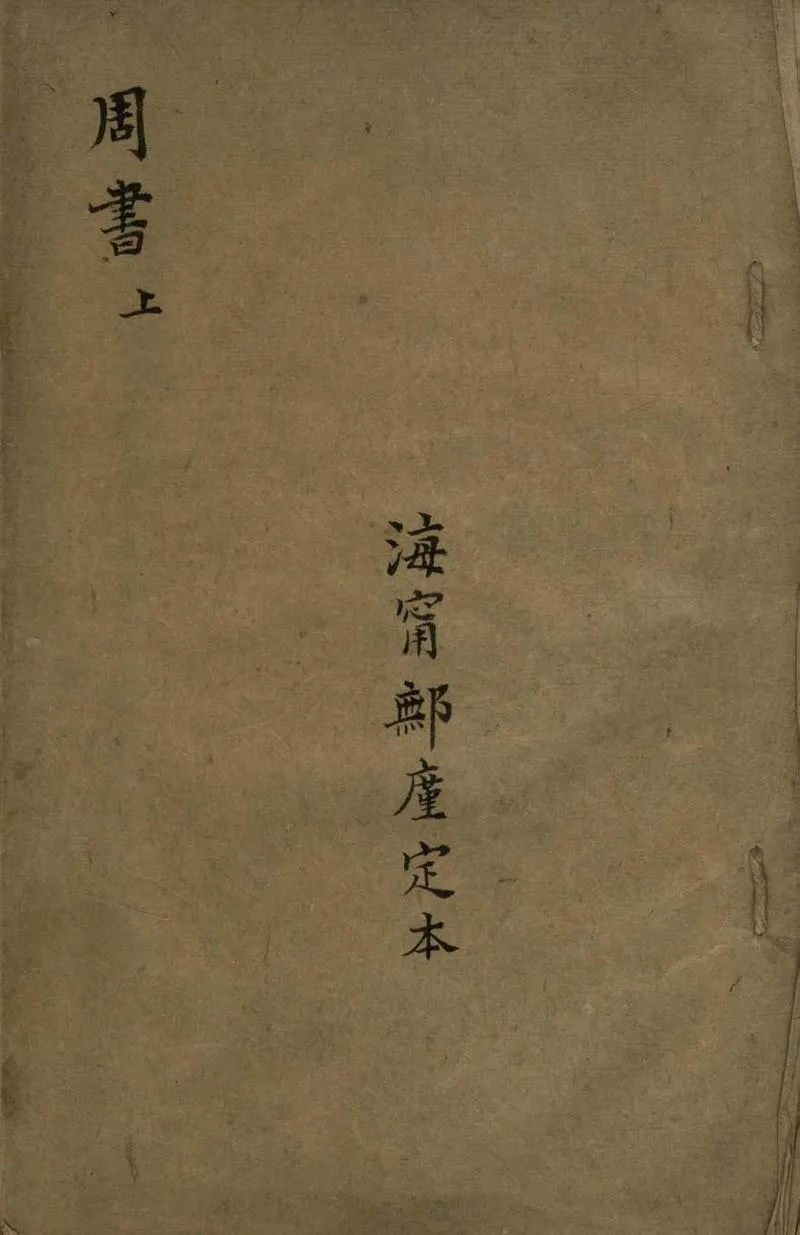 周書上
海甯鄦廑定本